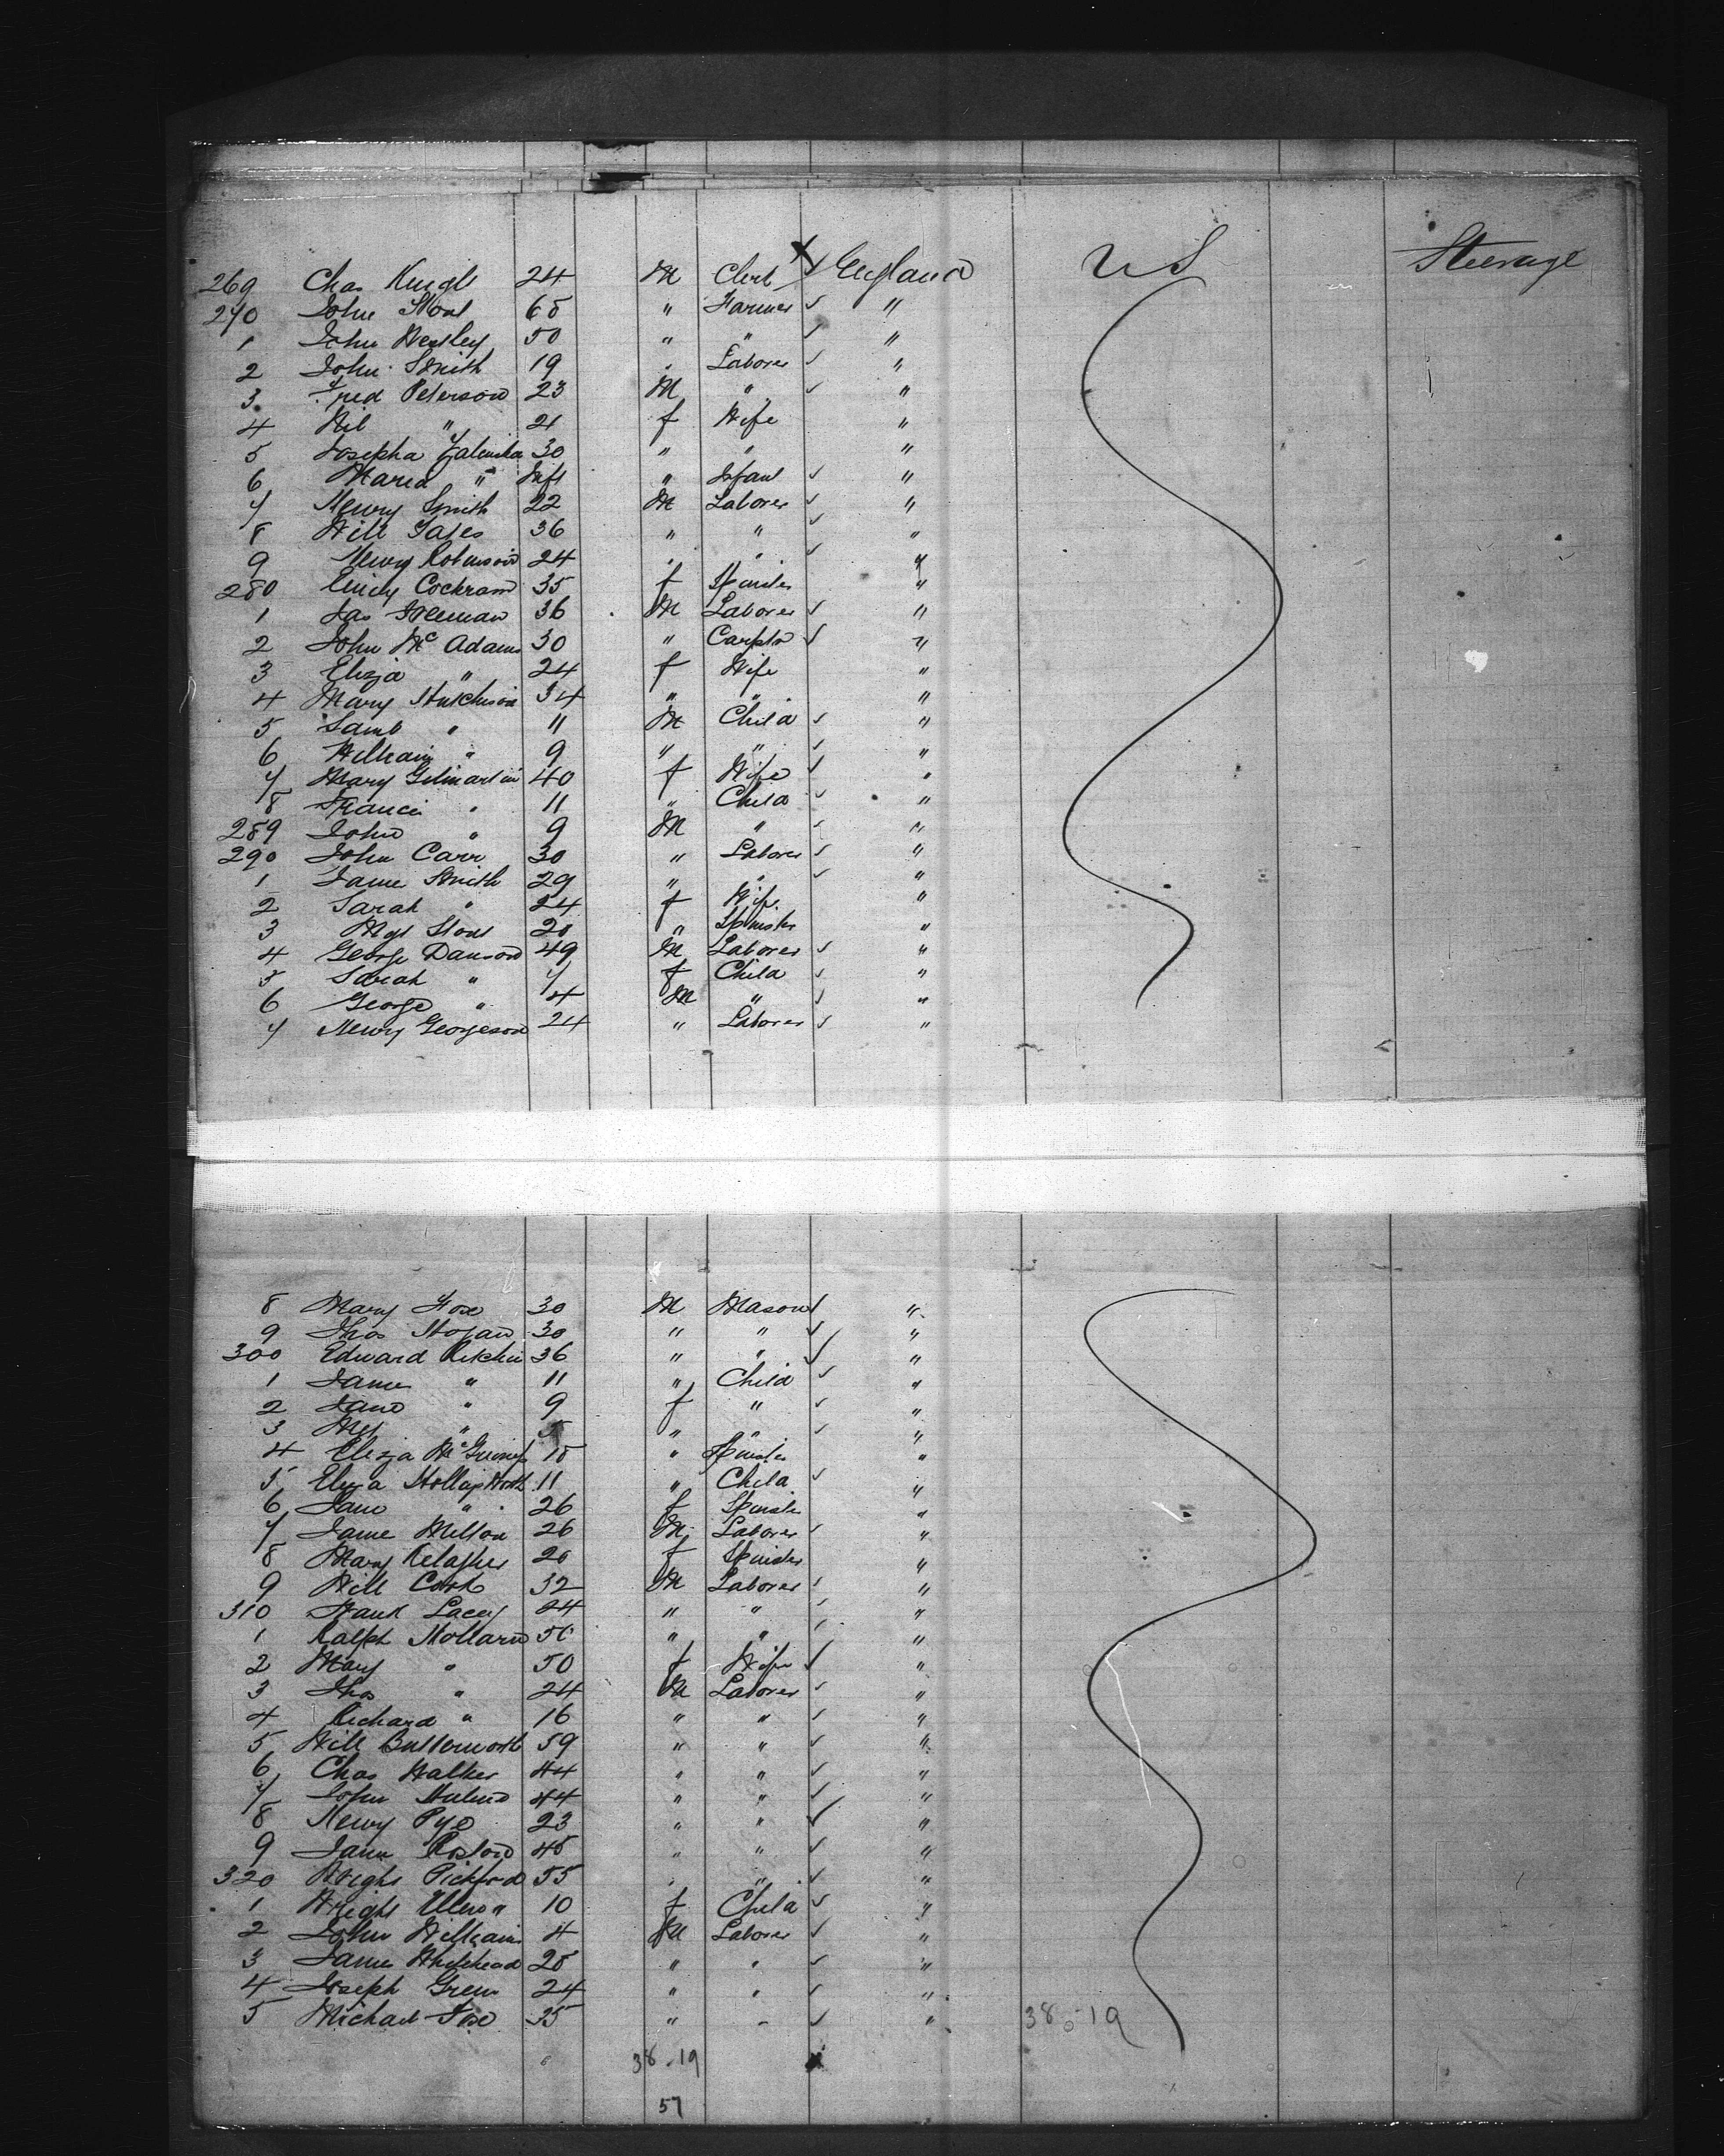 269 Chas 24 M Clerk England U S Steerage
270 John 65 " Farmer "
1 John 50 " " "
2 John Smith 19 " Laborer "
3 Fred Peterson 23 M " "
4 " 21 f Wife "
5 Josepha 30 " " "
6 Maria " Inft " Infant "
7 Henry Smith 22 M Laborer "
8 Will 36 " " "
9 Henry Robinson 24 " " "
280 Cochran 35 f Spinster "
1 Jas Freeman 36 M Laborer "
2 John Mc Adams 30 " Carptr "
3 Eliza " 24 f Wife "
4 Mary Hutchison 34 " " "
5 Saml " 11 M Child "
6 William " 9 " " "
7 Mary Gilmartin 40 f Wife "
8 Francis " 11 " Child "
289 John " 9 M " "
290 John Carr 30 " Laborer "
1 James Smith 29 " " "
2 Sarah " 24 f Wife "
3 Mgt 20 " Spinster "
4 George Danson 49 M Laborer "
5 Sarah " 7 f Child "
6 George " 4 M " "
7 Henry Georgeson 24 " Laborer "
8 Mary Fox 30 M Mason "
9 Thos Hogan 30 " " "
300 Edward 36 " " "
1 James " 11 " Child "
2 Jane " 9 f " "
3 " 5 " " "
4 Eliza 18 " Spinster "
5 Eliza Hollingworth 11 " Child "
6 Jane " 26 f Spinster "
7 James 26 M Laborer "
8 Mary 20 f Spinster "
9 Will Cork 32 M Laborer "
310 Lacey 24 " " "
1 Ralph Mollard 50 " " "
2 Mary " 50 f Wife "
3 Thos " 24 M Laborer "
4 Richard " 16 " " "
5 Will Butterworth 59 " " "
6 Chas Walker 44 " " "
7 John 44 " " "
8 Henry Pye 23 " " "
9 James 45 " " "
320 Wright Pickford 55 " " "
1 Wright Ellen " 10 f Child "
2 John William 4 M Laborer "
3 James Whitehead 25 " " "
4 Joseph Green 24 " " "
5 Michael Fox 35 " " " 38-19
38-19
57